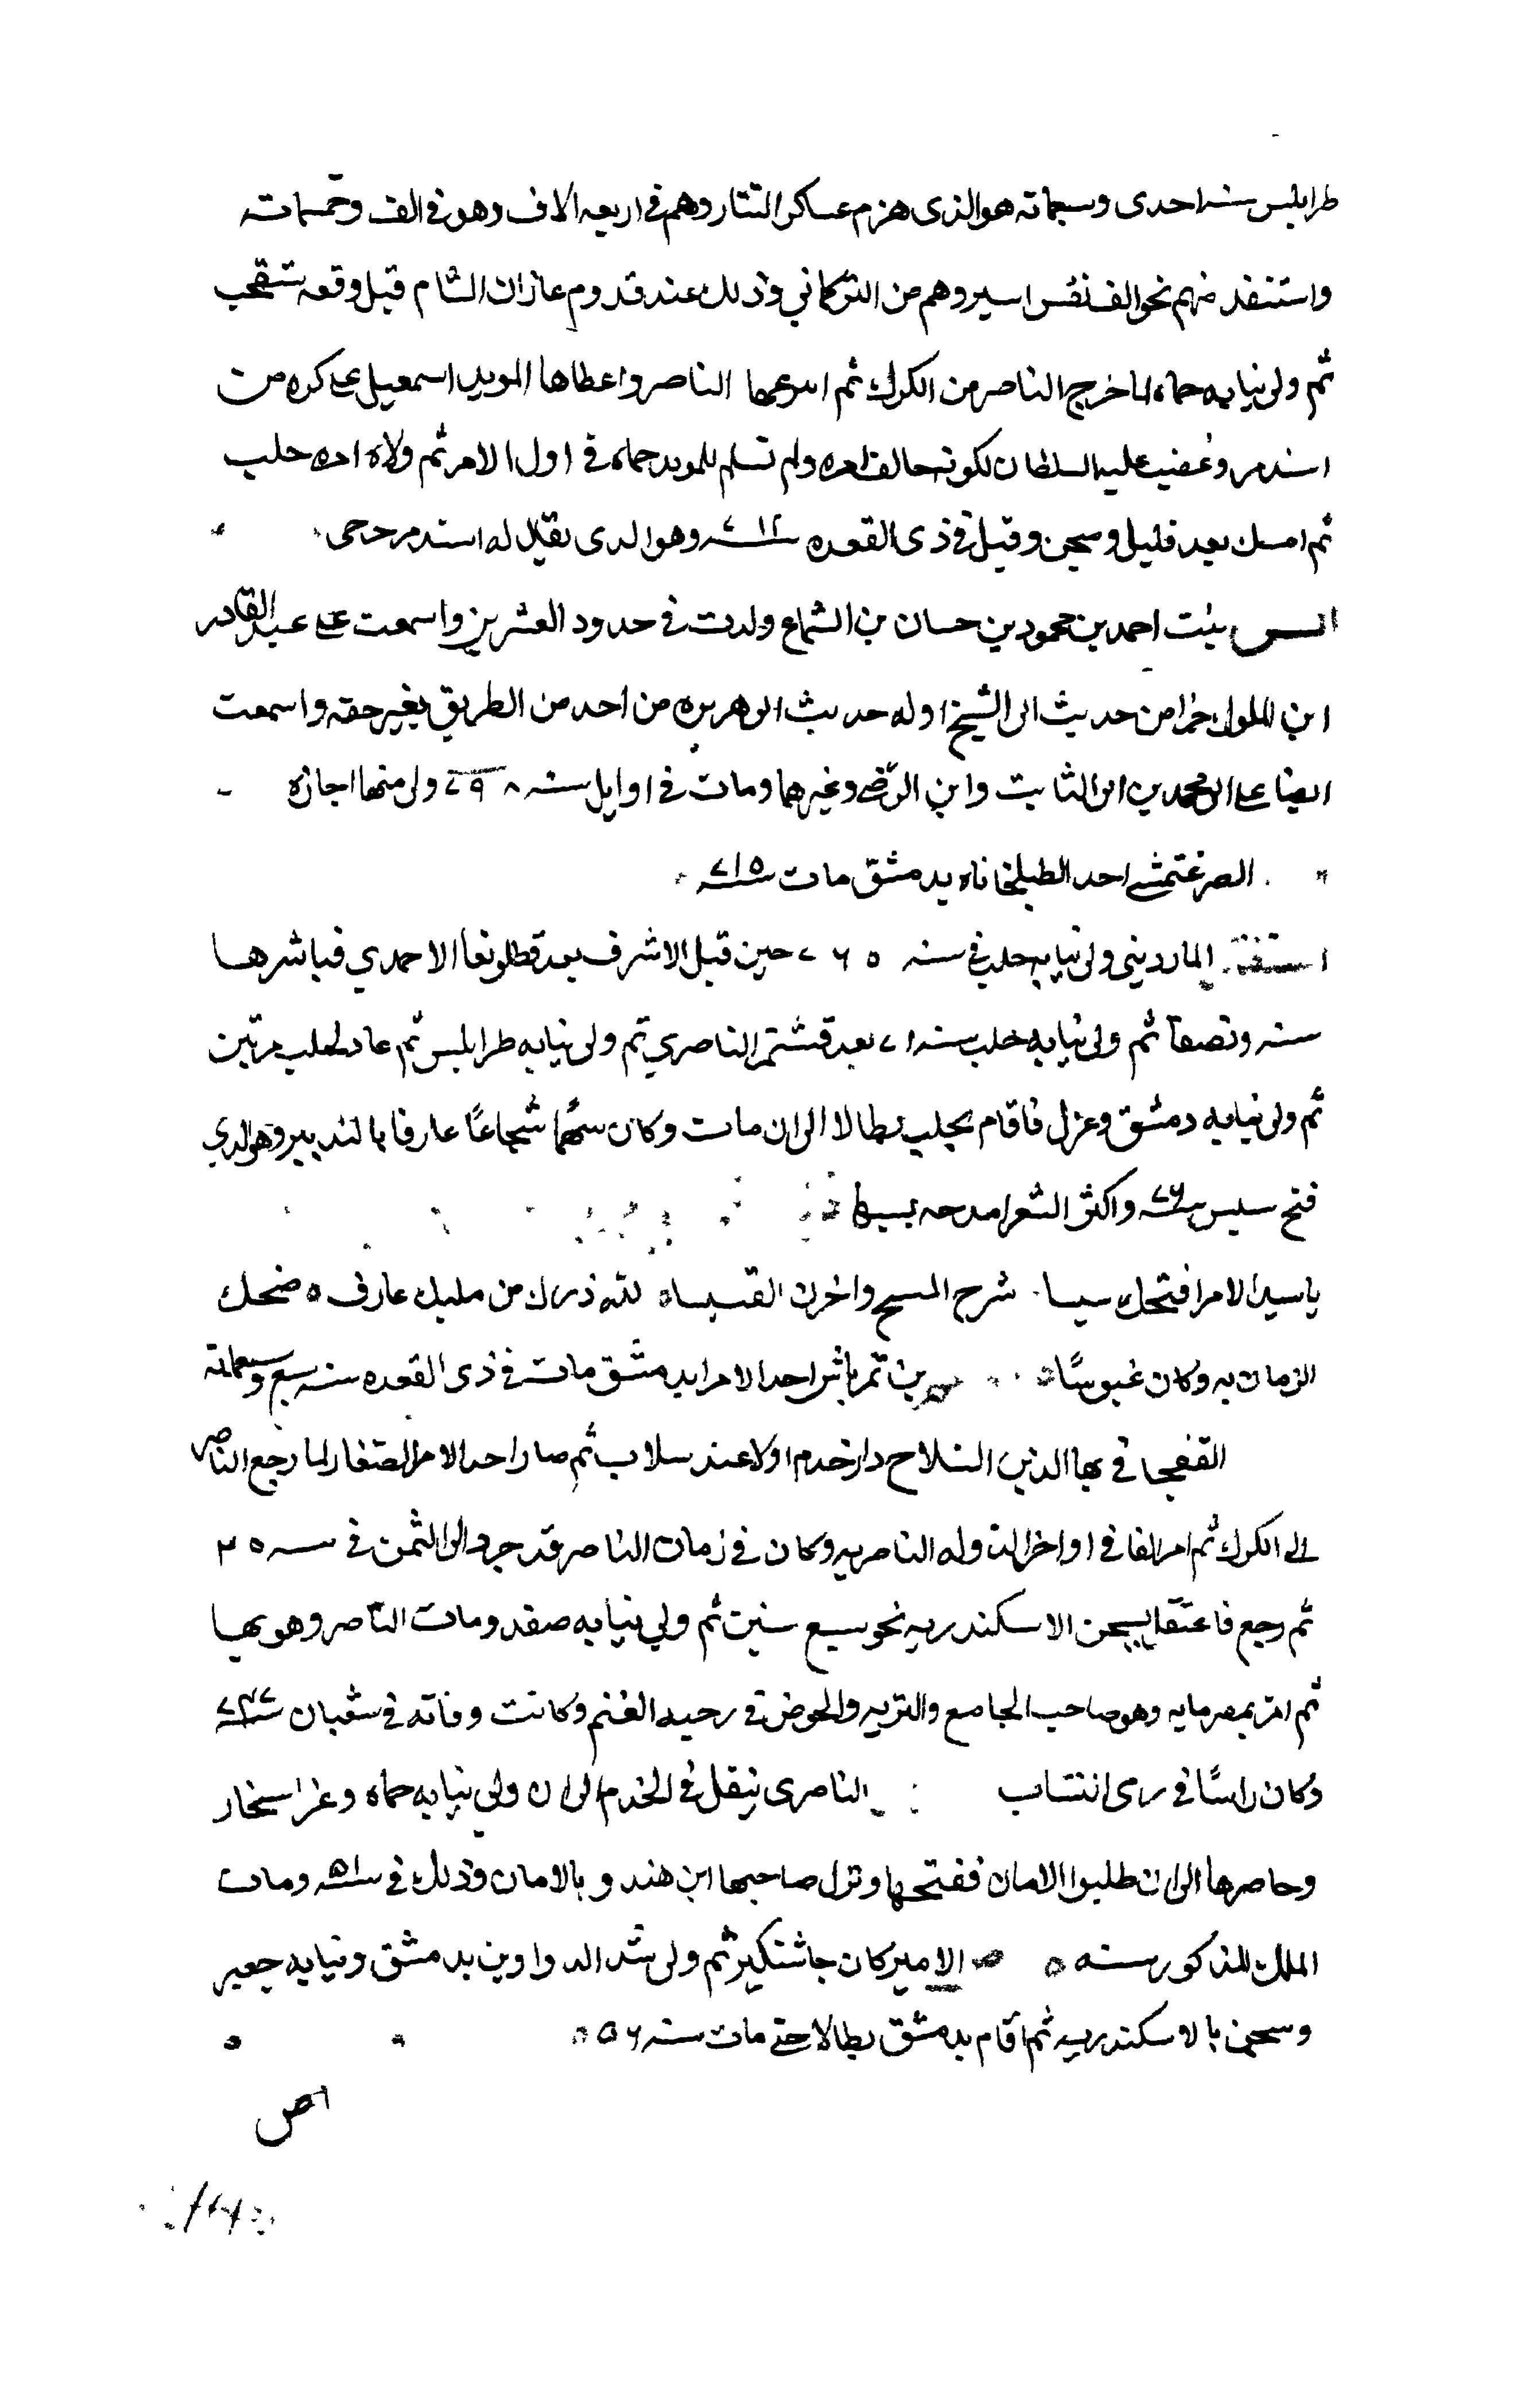 طرابلس سنه احدى وسبعماته هو الذى هزم عساكر التتار وهم فى اربعه الاف وهو فى الف وخمسماته
واستنقذ منهم نحو الف نفس اسير وهم من التركمانى وذلك عند قدوم غازان الشام قبل وقعه شقحب
ثم ولى نيابه حماه لما خرج الناصر من الكرك ثم انتزعها الناصر واعطاها المويد اسمعيل على كره من
اسندمر وغضب عليه السلطان لكونه خالف امره ولم تسلم للمويد حماه فى اول الامر ثم ولاه امره حلب
ثم امسك بعد قليل وسجن وقتل فى ذى القعده سنه ٧١٢ وهو الدى يقال له اسندمر حرحى
انس بنت احمد بن محمود بن حسان بن الشماع ولدت فى حدود العشرين واسمعت على عبد القادر
ابن الملوك جزا من حديث ابى الشيخ اوله حديث ابى هريره من اخذ من الطريق بغير حقه واسمعت
ايضا على ابى محمد بن ابى الثابت وابن الرضى وغيرهما ومات فى اوايل سنه ٧٩٨ ولى منها اجازه
الصرغتمشى احد الطبلخاناه بدمشق مات سنه ٧١٥
المارديني ولى نيابه حلب فى سنه ٧٦٥ حين قبل الاشرف بعد قطلوبغا الاحمدي فباشرها
سنه ونصفا ثم ولى نيابه حلب سنه ٧١ بعد قشتمر الناصري ثم ولى نيابه طرابلس ثم عاد لحلب مرتين
ثم ولى نيابه دمشق وعزل فاقام بحلب بطالا الى ان مات وكان شهما شجاعا عارفا بالتدبير وهو الدي
فتح سيس سنه ٧٦ واكثر الشعرا مدحه بسببها
ياسيد الامرا فتحك سيسا شرح المسيح واحزن القسيساه لله درك من مليك عارف ٥ ضحك
الزمان به وكان عبوسًا بن تمرباش احد الامرا بدمشق مات فى ذى القعده سنه سبع وسبعماته
القفجاقى بها الدين السلاح دار خدم اولا عند سلاب ثم صار احد الامرا الصغار لما رجع الناصر
الى الكرك ثم امر الفا فى اواخر الدوله الناصريه وكان فى زمان الناصر قد جرد الى الثمن فى سنه ٢٥
ثم رجع فاعتقل بسجن الاسكندريه نحو سبع سنين ثم ولي نيابه صفد ومات الناصر وهو بها
ثم امر بمصر مايه وهو صاحب الجامع والتربه والحوض فى رحبه الغنم وكانت وفاته فى شعبان سنه
وكان راسًا فى رمى النشاب الناصرى تنقل فى الخدم الى ان ولى نيابه حماه وغزا سنجار
وحاصرها الى ان طلبوا الامان ففتحها ونزل صاحبها ابن هندو بالامان وذلك فى سنه ٥١ ومات
الملك المذكور سنه الامير كان جاشنكير ثم ولى شد الدواوين بدمشق ونيابه جعبر
وسجن بالاسكندريه ثم اقام بدمشق بطالا حتى مات سنه ٥٦